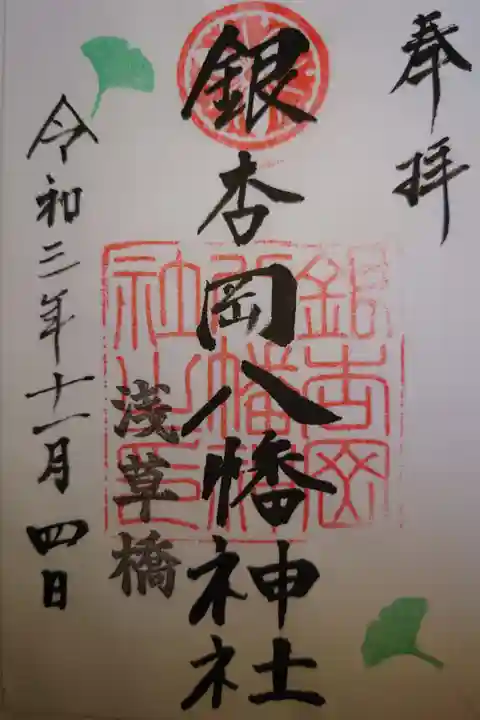 奉拝
銀杏岡八幡神社
浅草橋
令和三年十一月四日
銀杏岡
八幡神
社之印